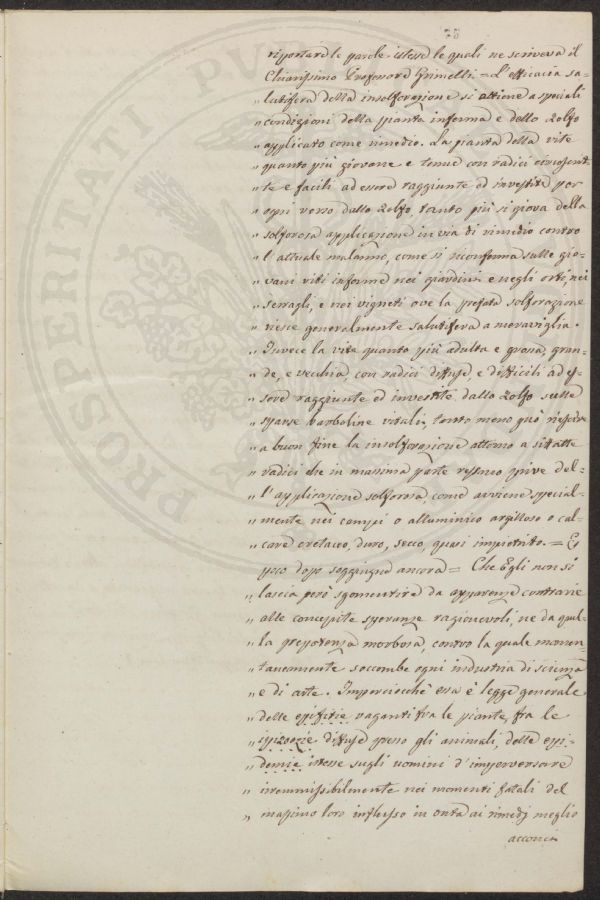 78
riportare le parole istesse le quali ne scriveva il
Chiarissimo Professore Grimelli = L'efficacia sa-
" lutifera della insolforazione si attiene a speciali
" condizioni della pianta inferma e dello zolfo
" applicato come rimedio. La pianta della vite
" quanto più giovane e tenue con radici
" te e facili ad essere raggiunte ed investite per
" ogni verso dallo zolfo, tanto più si giova della
" solforosa applicazione in via di rimedio contro
" l'attuale malanno, come si riconferma sulle gio-
" vani viti inferme nei giardini e negli orti, nei
" serragli, e nei vigneti ove la prefata solforazione
" riesce generalmente salutifera a meraviglia.
" Invece la vite quanto più adulta e grossa, gran-
" de, e vecchia, con radici diffuse, e difficili ad es-
" sere raggiunte ed investite dallo zolfo sulle
" sparse barboline vitali, tanto meno può riescire
" a buon fine la insolforazione attorno a siffatte
" radici che in massima parte restano prive del-
" l'applicazione solforosa, come avviene special-
" mente nei campi o alluminico argilloso o cal-
" care cretaceo, duro, secco, quasi impietrito. = E
" poco dopo soggiugne ancora = Che Egli non si
" lascia però sgomentire da apparenze contrarie
" alle concepite speranze ragionevoli, ne da quel-
" la prepotenza morbosa, contro la quale momen-
" taneamente soccombe ogni industria di scienza
" e di arte. Imperciocchè essa è legge generale
" delle epifitie vaganti fra le piante, fra le
" epizoozie diffuse presso gli animali, delle epi-
" demie istesse sugli uomini d'imperversare
" irremissibilmente nei momenti fatali del
" massimo loro influsso in onta ai rimedj meglio
acconci
PROSPERITATI PUBL